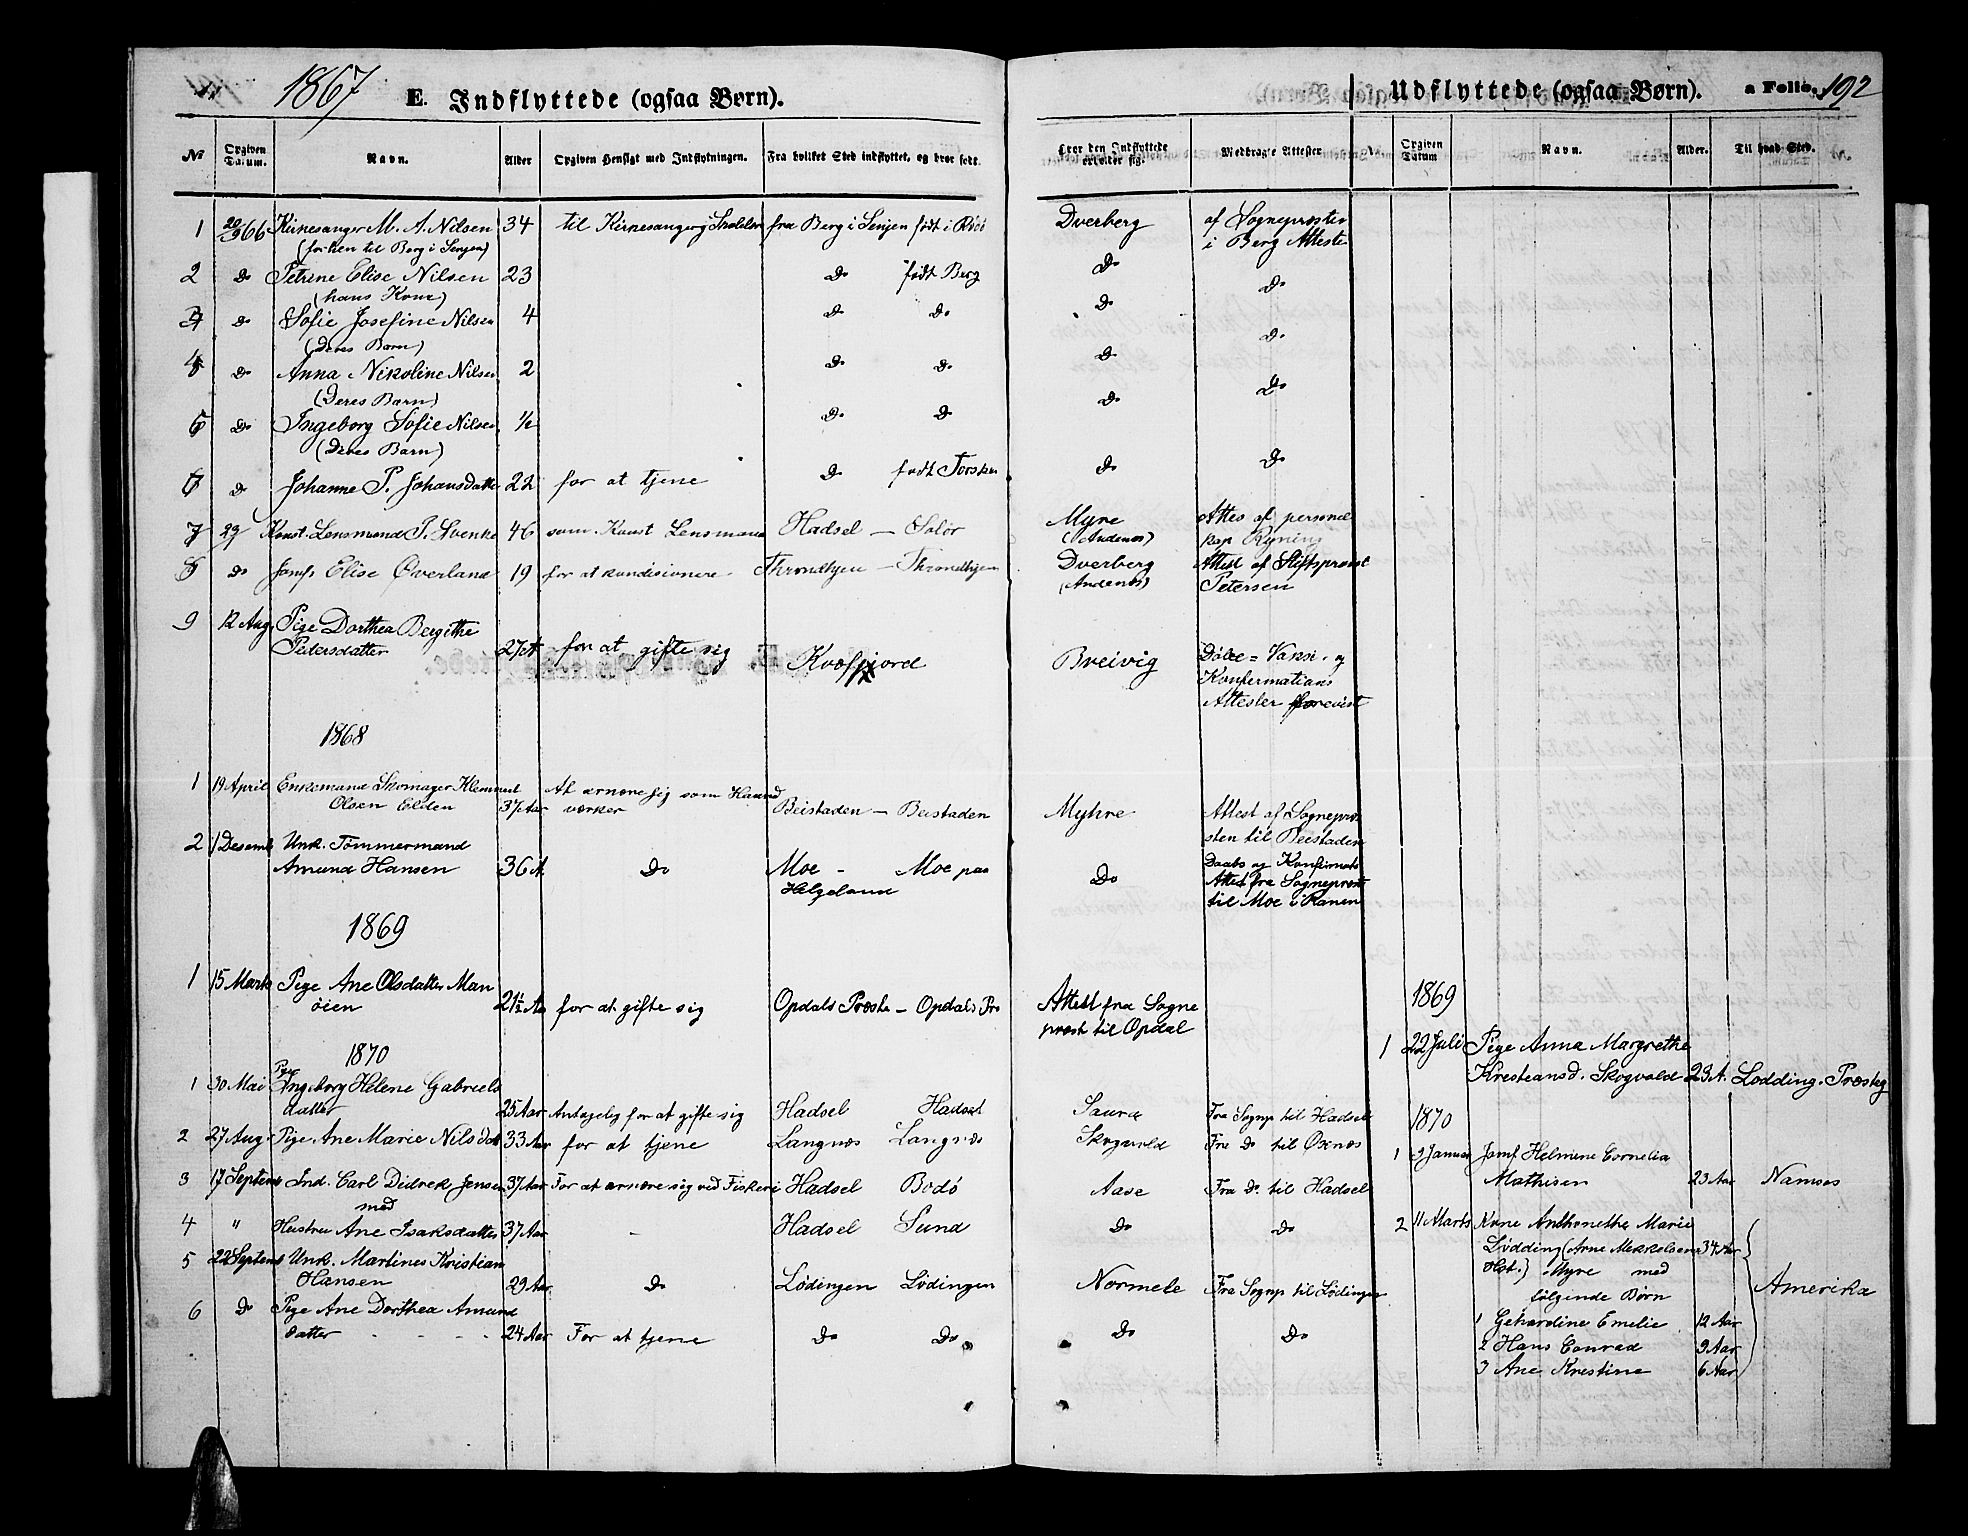 1867 E. Indflyttede (ogsaa Børn).
Udflyttede (ogsaa Børn). a Folio. 192
No Opgiven Datum. Navn. Alder Opgiven Hensigt med Indflytningen. Fra hvilket Sted indflyttet, og hvor født.
Hvor den Indflyttede opholder sig. Medbragte Attester Opgiven Datum Navn. Alder. Til hvad Sted.
1 20/9 66 Kirkesanger M. A. Nilsen 34 til Kirkesanger fra Berg i Senjen født i Dverberg af Sogneprosten
(for hen til Berg i Senjen) i Berg Atteste
2 Do Petrine Elise Nilsen 23 Do født Berg Do Do
(hans Kone)
3 Do Sofie Josefine Nilsen 4 Do Do Do Do
(Deres Barn)
4 Do Anna Nikoline Nilsen 2 Do Do Do Do
(Deres Barn)
5 Do Ingeborg Sofie Nilsen 1/2 Do Do
(Deres Barn)
6 Do Johanne P. Johansdatte 22 for at tjene Do født Torsken Do Do
7 29 Konst. Lensmand P. Svenke 46 som Konst Lensmand Hadsel — Solør Myre Attes af personel
(Andenes) kap Ryning
8 Do Jomf. Elise Øverland 19 for at kondisionere Throndhjem — Throndhjem Dverberg Attest af Stiftsprovst
(Andenes) Petersen
9 12 Aug. Pige Dorthea Bergithe
Pedersdatter 27 A for at gifte sig Kvæfjord Breivig Døbe= Vaksi. og
Konfermations
Attester forevist
1868
1 19 April Enkemand Skomager Klemmet At ærnære sig som Haand
Olsen Elden 37 Aar værker Beistaden — Beistaden Myhre Attest af Sognepræ
sten til Beistaden
2 1 Desemb Unk. Tømmermand
Amund Hansen 36 A. Do Moe - Moe paa Do Daabs og Konfirmats
Helgeland Attest fra Sogneprest
til Moe i Ranen
1869
1 15 Marts Pige Ane Olsdatter Man
øien 21½ Aa for at gifte sig Opdals Præste — Opdals Præ Attest fra Sogne
prest til Opdal
1870
1 30 Mai Pige Ingeborg Helene Gabriels
datter 25 Aar Antagelig for at gifte sig Hadsel Hadsel Saura Fra Sognp til Hadsel
2 27 Aug. Pige Ane Marie Nilsdatt 33 Aar for at tjene Langnæs Langnæs Skogvold Fra Do til Øxnæs
3 17 Septem Ind. Carl Didrek Jensen 37 Aar For at ærnære sig ved Fiskeri Hadsel Bodø Aase Fra Do. til Hadsel
med
4 " Hustru Ane Isaksdatter 37 Aar - Hadsel Sund Do Do
5 22 Septem Unk. Martines Kristian
Hansen 29 Aar Do Lødingen Lødingen Normele Fra Sognp til Lødingen
6 Do Pige Ane Dorthea Amund
datter 24 Aar For at tjene Do Do Do Do
1869
1 22 Juli Pige Anna Margrethe
Kresteansd. Skogvold 23 A. Lodding. Præsteg
1870
1 9 Januar Jomf Helmine Cornelia
Mathisen 23 Aar Namsos
2 11 Marts Kone Anthonethe Marie
Lødding (Arne Mekkelsens 34 Aar
Hst.) Myre med
følginde Børn Amerika
1 Gehardine Emelie 12 Aar
2 Hans Conrad 9 Aar
3 Ane Krestine 6 Aar